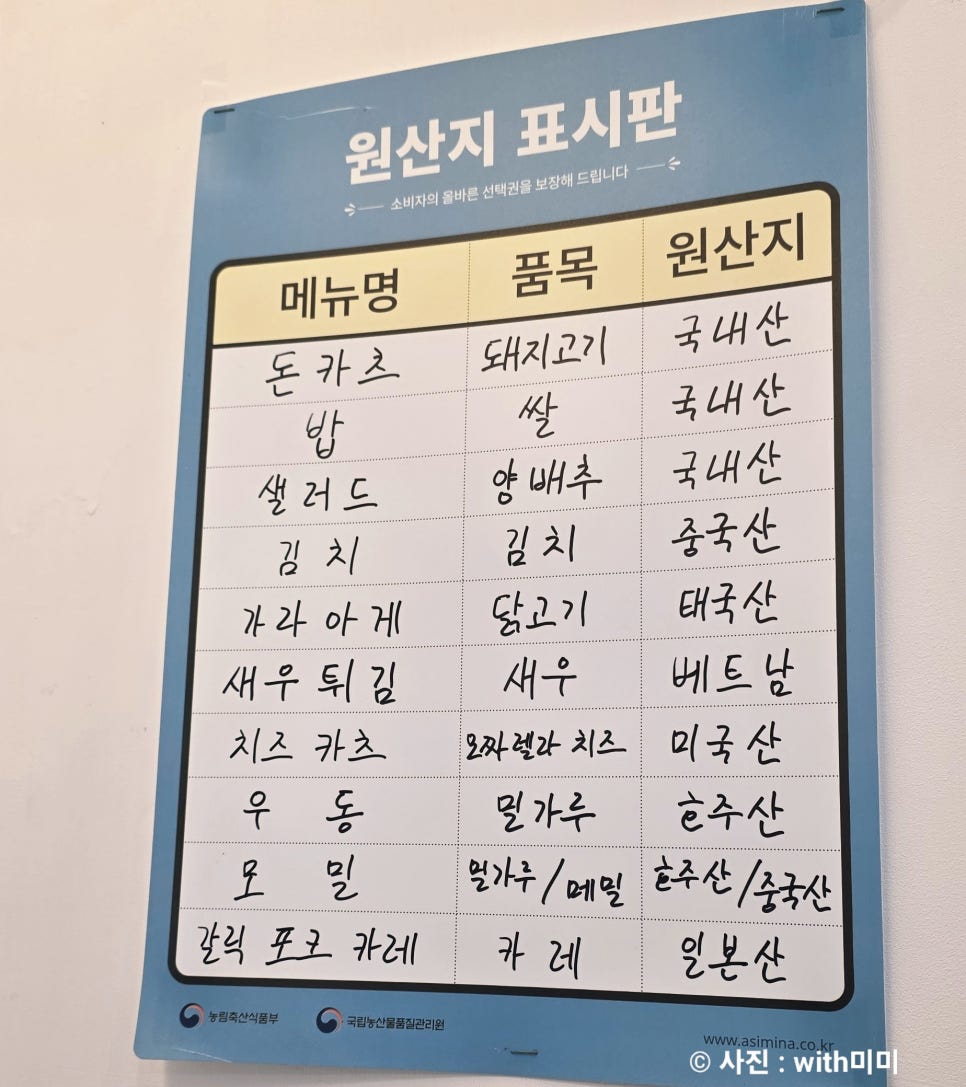 원산지 표시판
소비자의 올바른 선택권을 보장해 드립니다
메뉴명 품목 원산지
돈카츠 돼지고기 국내산
밥 쌀 국내산
샐러드 양배추 국내산
김치 김치 중국산
가라아게 닭고기 태국산
새우튀김 새우 베트남
치즈카츠 모짜렐라 치즈 미국산
우동 밀가루 호주산
모밀 밀가루/메밀 호주산/중국산
갈릭 포크 카레 카레 일본산
농림축산식품부 국립농산물품질관리원
www.asimina.co.kr
© 사진 : with미미